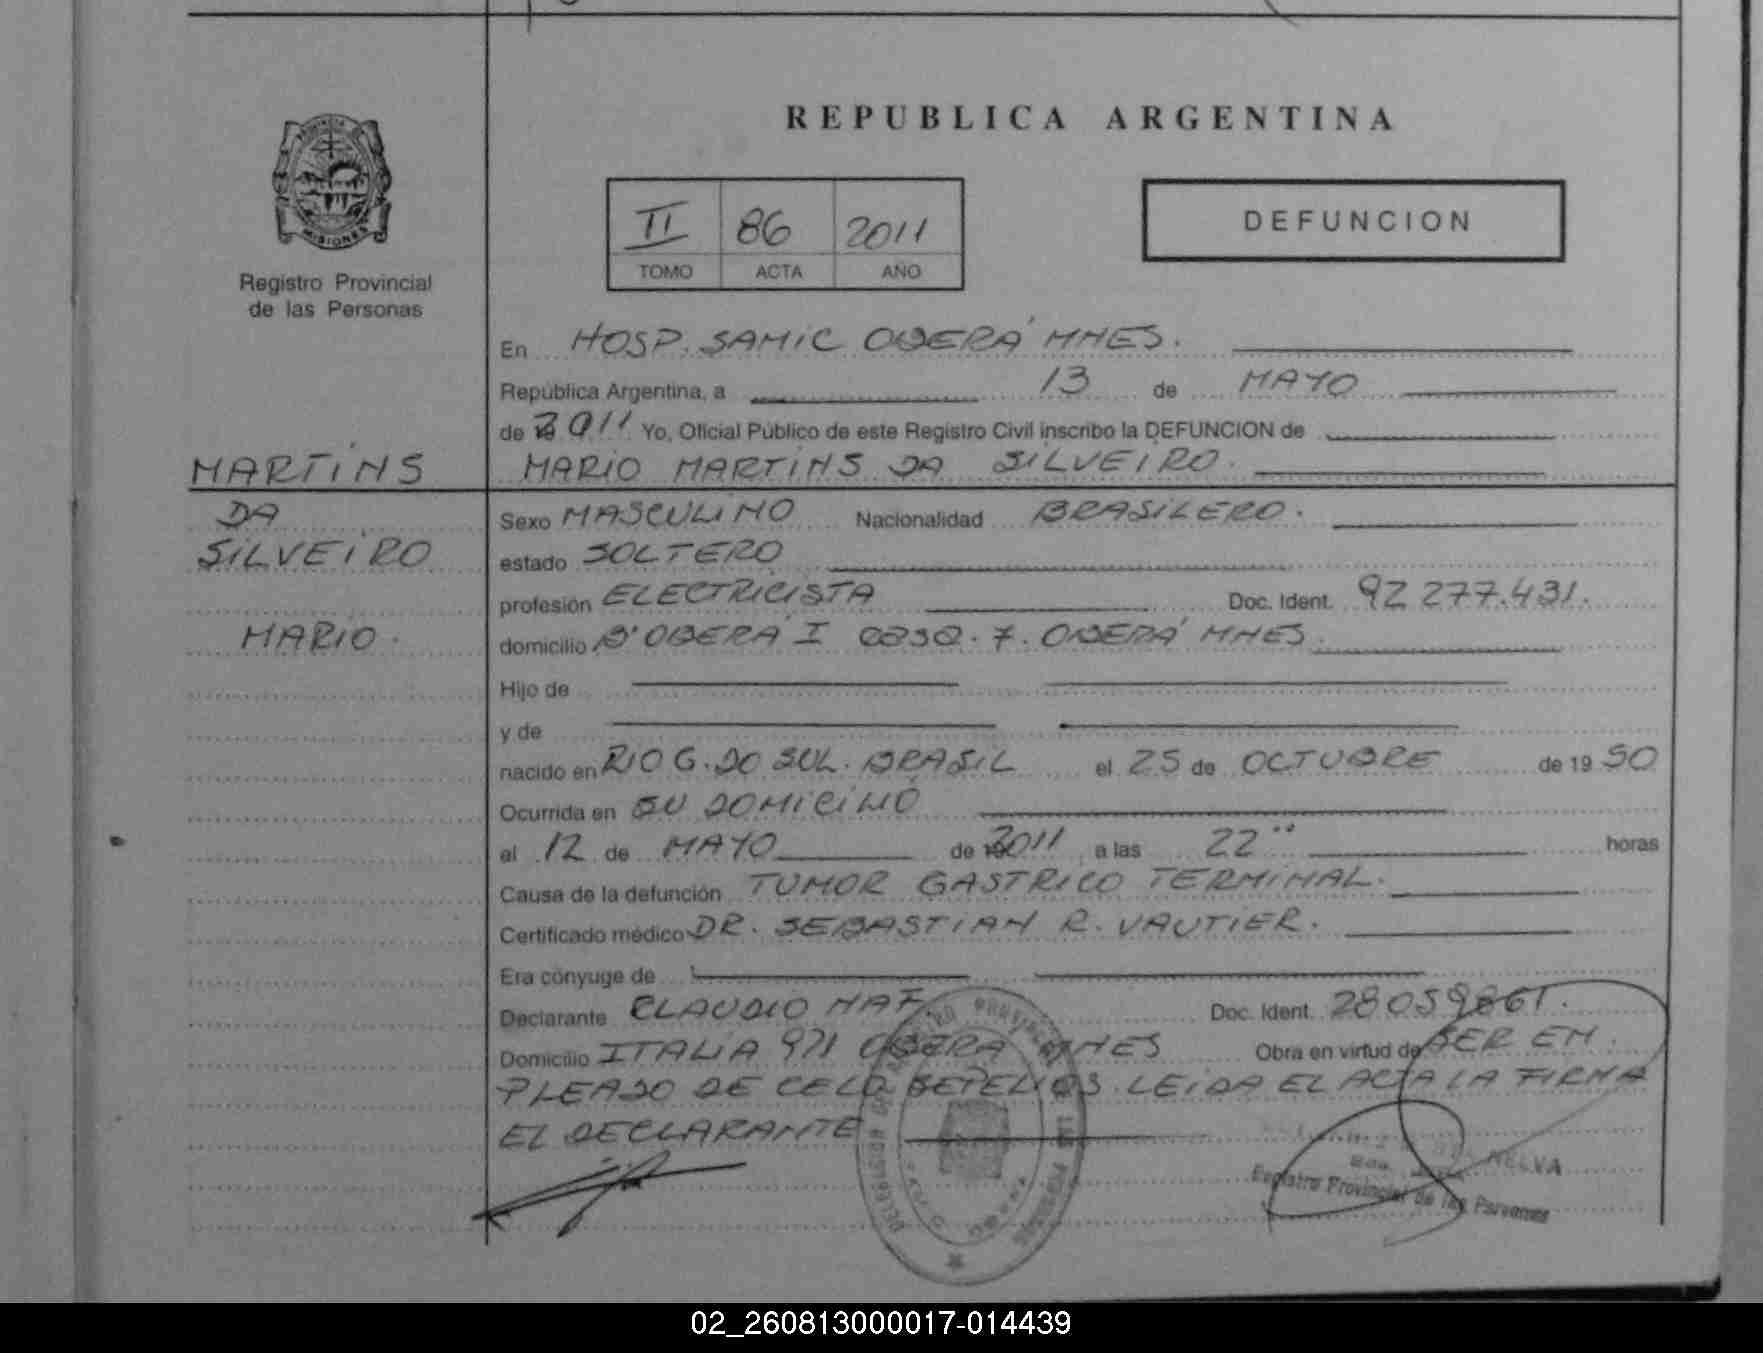 REPUBLICA ARGENTINA
PROVINCIA DE
MISIONES
Registro Provincial
de las Personas
II 86 2011
TOMO ACTA AÑO
DEFUNCION
En HOSP. SAMIC OBERÁ MNES.
República Argentina, a 13 de MAYO
de 2011 Yo, Oficial Público de este Registro Civil inscribo la DEFUNCION de
MARTINS MARIO MARTINS DA SILVEIRO.
DA
SILVEIRO
MARIO.
Sexo MASCULINO Nacionalidad BRASILERO.
estado SOLTERO
profesión ELECTRICISTA Doc. Ident. 92 277.431.
domicilio Bº OBERÁ I 7. OBERÁ MNES.
Hijo de
y de
nacido en RIO G. DO SUL. BRASIL el 25 de OCTUBRE de 19 50
Ocurrida en SU DOMICILIO
el 12 de MAYO de 2011 a las 22 horas
Causa de la defunción TUMOR GASTRICO TERMINAL.
Certificado médico DR. SEBASTIAN R. VAUTIER.
Era cónyuge de
Declarante CLAUDIO Doc. Ident. 28059861.
Domicilio ITALIA 971 OBERA MNES Obra en virtud de SER EM
PLEADO DE LEIDA EL ACTA LA FIRMA
EL DECLARANTE
Registro Provincial de las Personas
02_260813000017-014439